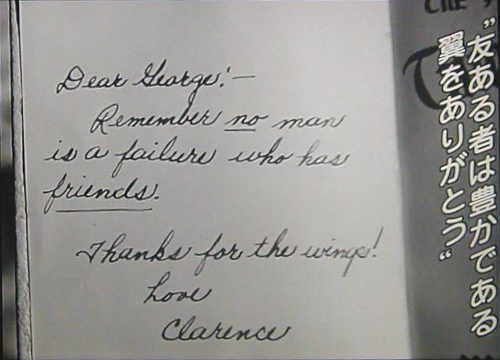 Dear George:—
Remember no man
is a failure who has
friends.
Thanks for the wings!
Love
Clarence
“友ある者は豊かである
翼をありがとう”